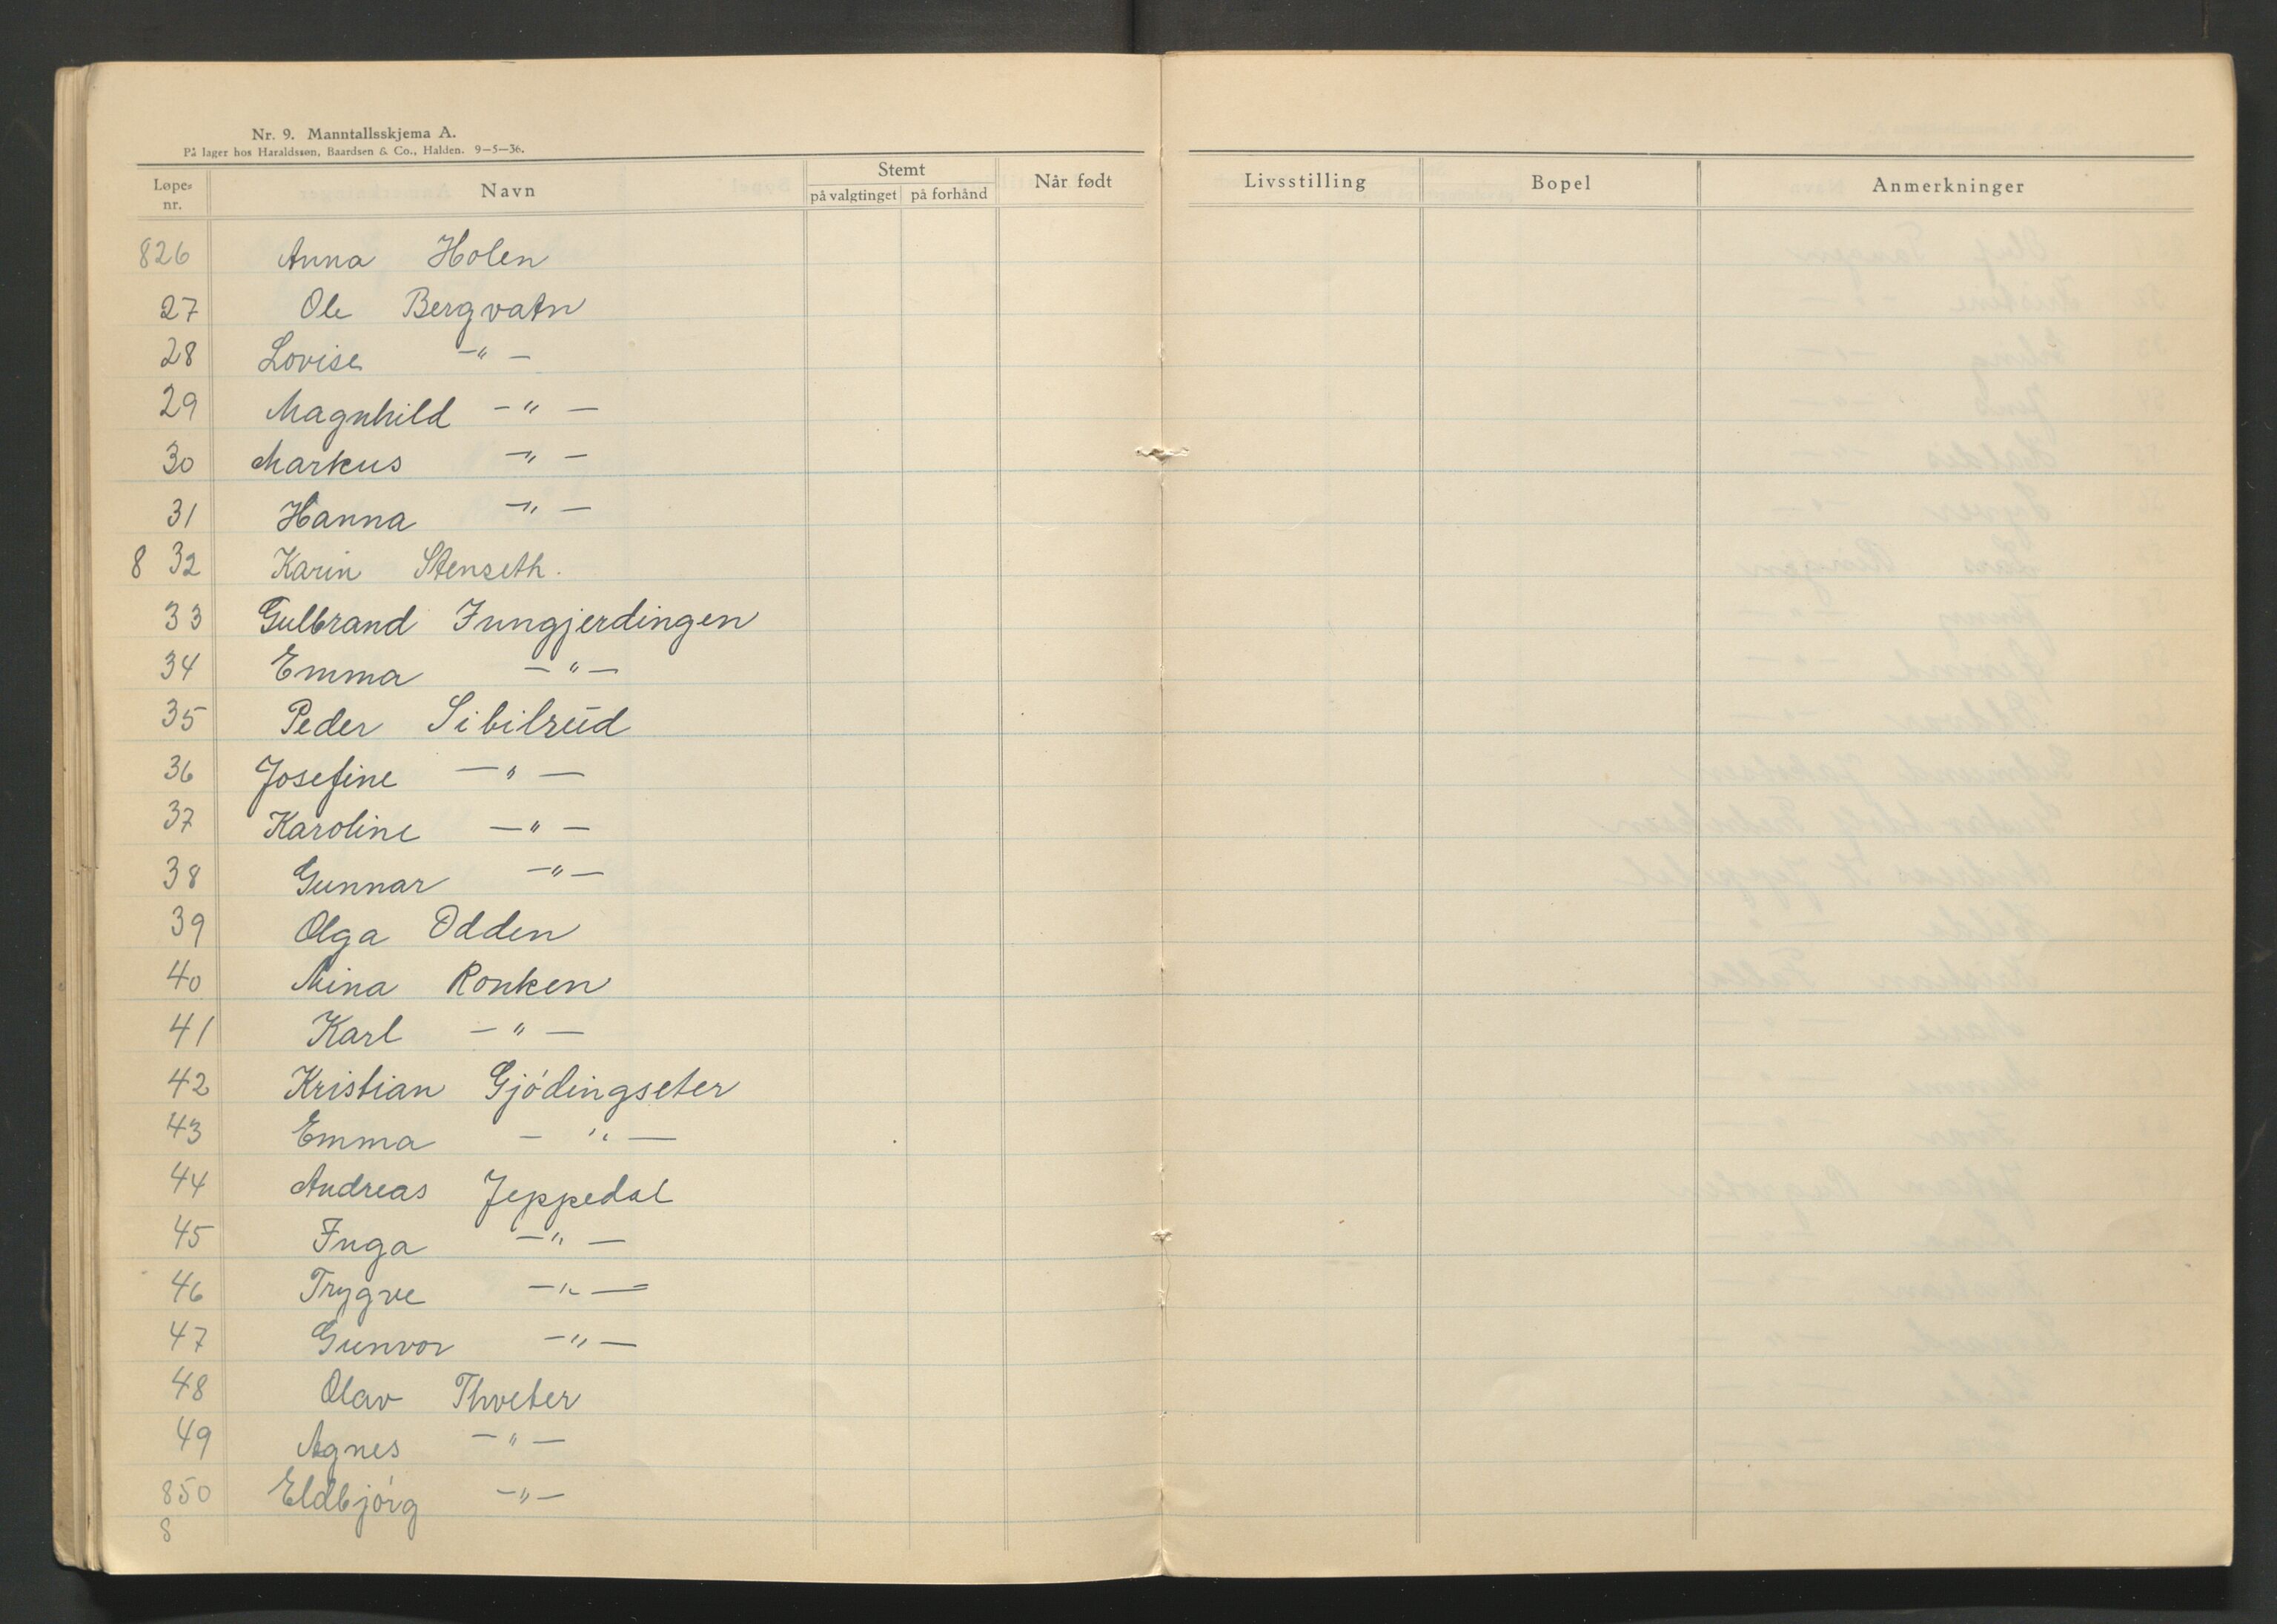 Nr. 9. Manntallsskjema A.
På lager hos Haraldssøn, Baardsen & Co., Halden. 9-5-36.
Løpe-nr. Navn Stemt på valgtinget på forhånd Når født Livsstilling Bopel Anmerkninger
826 Anna Holen
27 Ole Bergvatn
28 Lovise -"-
29 Magnhild -"-
30 Markus -"-
31 Hanna -"-
8 32 Karin Stenseth.
33 Gulbrand Inngjerdingen
34 Emma -"-
35 Peder Sibilrud
36 Josefine -"-
37 Karoline -"-
38 Gunnar -"-
39 Olga Odden
40 Mina Ronken
41 Karl -"-
42 Kristian Gjódingseter
43 Emma -"-
44 Andreas Jeppedal
45 Inga -"-
46 Trygve -"-
47 Gunvor -"-
48 Olav Thveter
49 Agnes -"-
850 Eldbjórg -"-
8